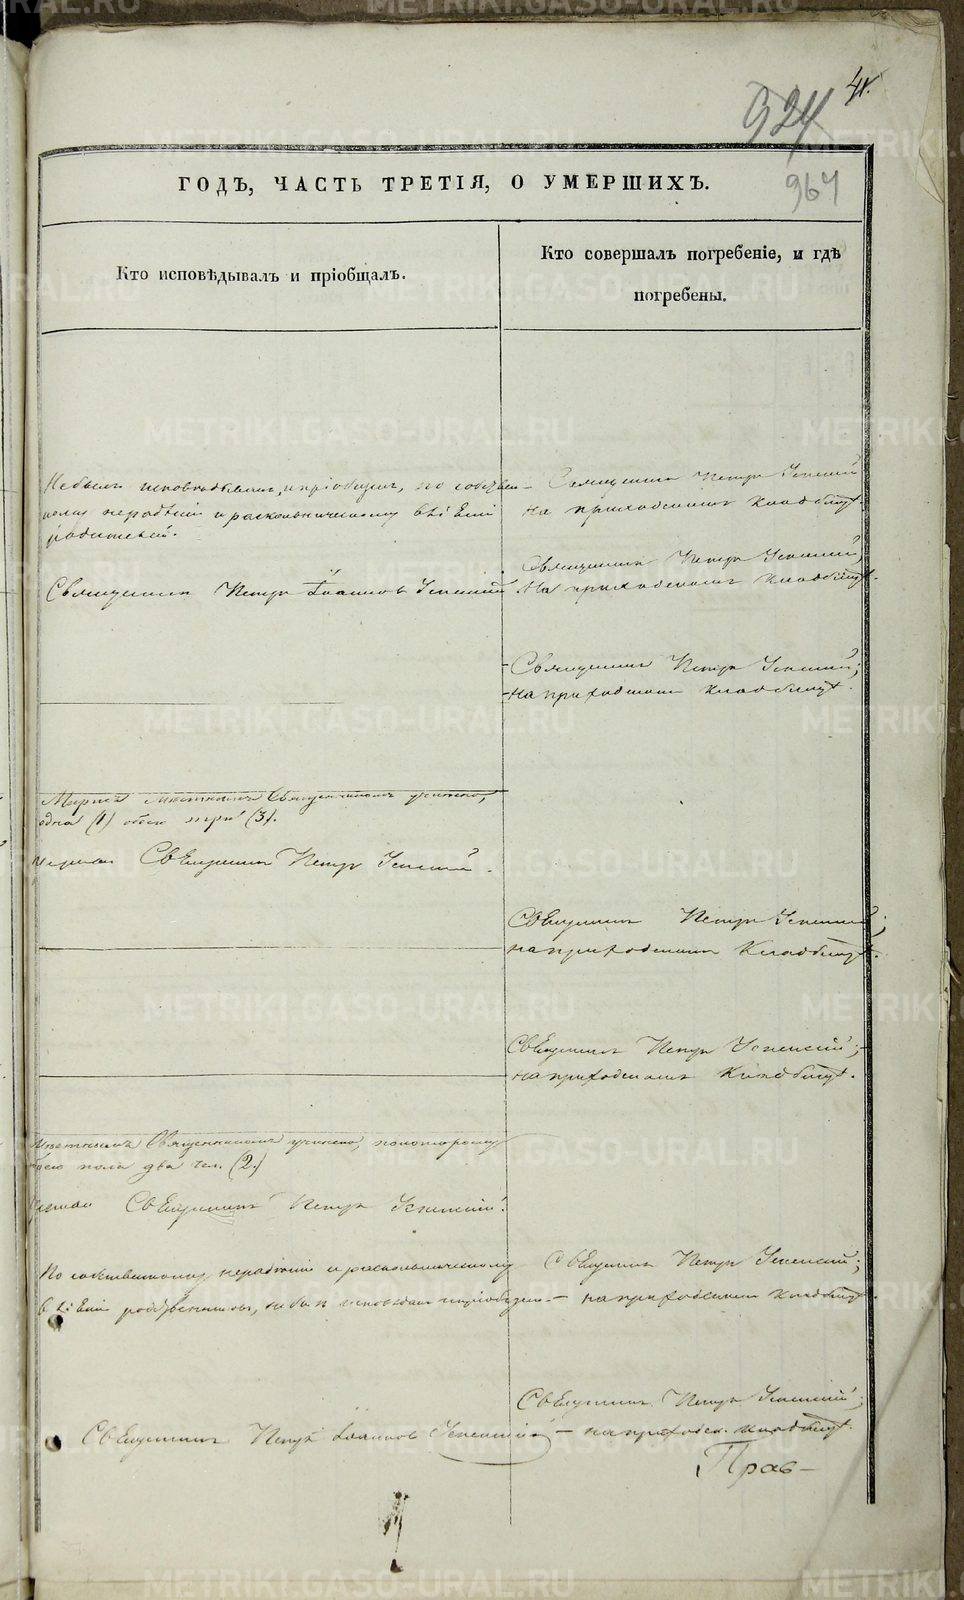 41.
924
964
ГОДЪ, ЧАСТЬ ТРЕТІЯ, О УМЕРШИХЪ.
Кто исповѣдывалъ и пріобщалъ.
Кто совершалъ погребеніе, и гдѣ
погребены.
Не былъ исповѣдыванъ, и пріобщенъ, по собствен-
ному нерадѣнію и раскольническому
родителей.
Священникъ Петръ Успенскій
на приходскомъ кладбищѣ.
Священникъ Петръ Іоанновъ Успенскій
Священникъ Петръ Успенскій,
На приходскомъ кладбищѣ.
Священникъ Петръ Успенскій;
на приходскомъ кладбищѣ.
Мѣстнымъ Священникомъ учинено,
одна (1) обоего три (3).
Священникъ Петръ Успенскій.
Священникъ Петръ Успенскій;
на приходскомъ Кладбищѣ.
Священникъ Петръ Успенскій;
на приходскомъ Кладбищѣ.
Мѣстнымъ Священникомъ учинено,
пола два чел. (2.)
Священникъ Петръ Успенскій.
По собственному нерадѣнію и раскольническому
не былъ исповѣданъ
Священникъ Петръ Успенскій;
на приходскомъ кладбищѣ.
Священникъ Петръ Іоанновъ Успенскій
Священникъ Петръ Успенскій;
на приходск. кладбищѣ.
Прав-
METRIKI.GASO-URAL.RU